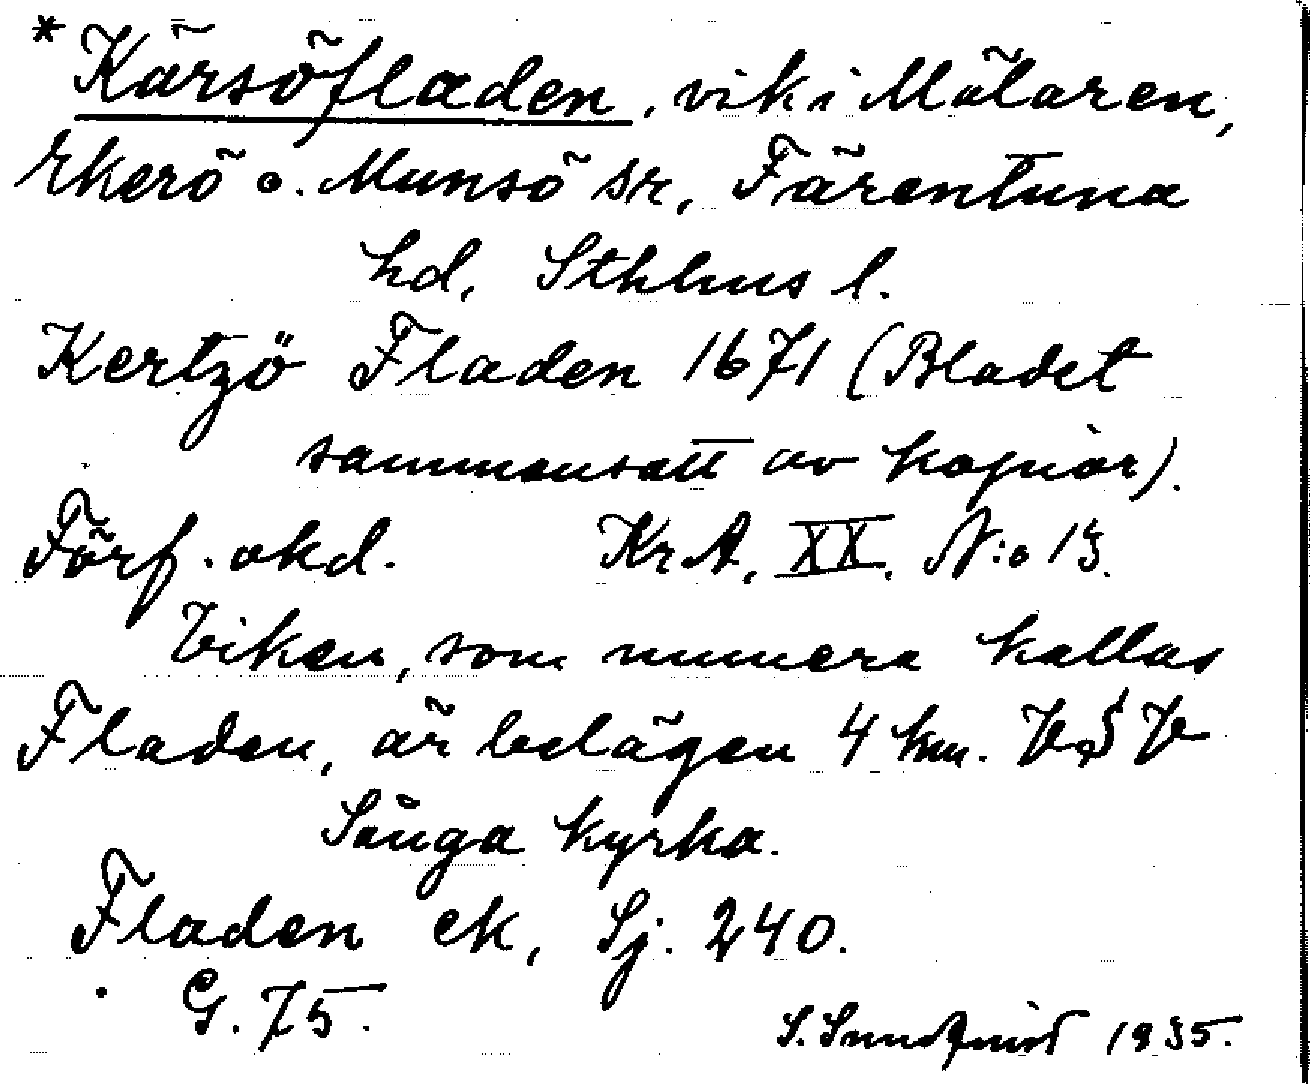 * Kärsöfladen, vik i Mälaren,
Ekerö o. Munsö snr, Färentuna
hd, Sthlms l.
Kertzö Fladen 1671 (Bladet
sammansatt av kopior).
Förf. okd. KrA, XX. N:o 13.
Viken, som numera kallas
Fladen, är belägen 4 km. VSV
Sånga kyrka.
Fladen ek, Sj. 240.
G. 75.
S. Sundqvist 1935.